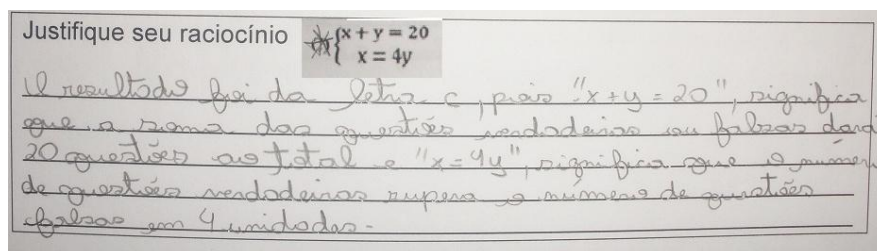 Justifique seu raciocínio
x + y = 20
x = 4y
O resultado foi da letra c, pois "x + y = 20", significa
que a soma das questões verdadeiras ou falsas dará
20 questões ao total e "x = 4y", significa que o númer
de questões verdadeiras supera o número de questões
falsas em 4 unidades.